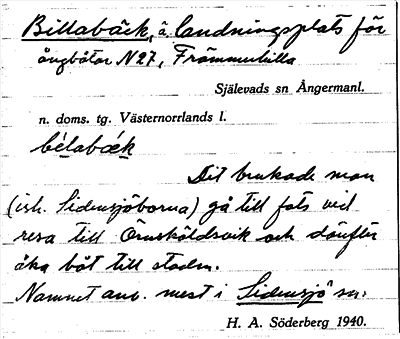 Billabäck, ä, landningsplats för
ångbåtar N 27, Främmerbilla
Själevads sn Ångermanl.
n. doms. tg. Västernorrlands l.
bèlabæ̀k
Dit brukade man
(isht. Sidensjöborna) gå till fots vid
resa till Örnsköldsvik och därifrån
åka båt till staden.
Namnet anv. mest i Sidensjö sn.
H. A. Söderberg 1940.